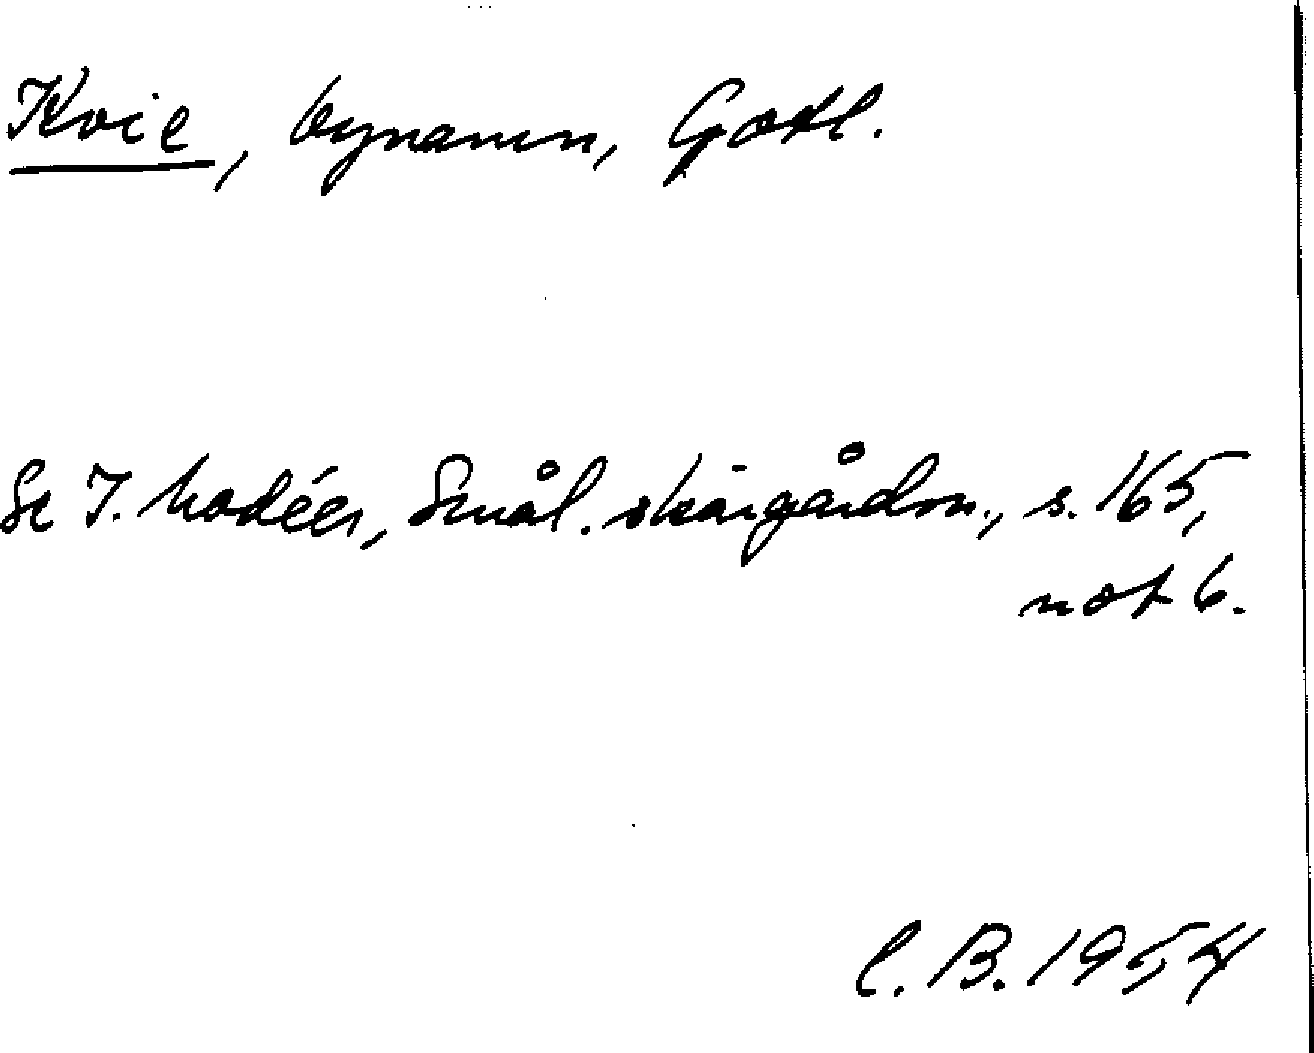 Kvie, bynamn, Gotl.
Se I. Modéer, Smål. skärgårdsn., s. 165,
not 6.
C. B. 1954